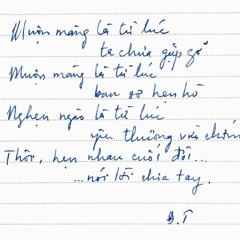 Muộn màng là từ lúc
ta chưa gặp gỡ
Muộn màng là từ lúc
ban sơ hẹn hò
Nghẹn ngào là từ lúc
yêu thương vừa chớm
Thôi, hẹn nhau cuối đời...
...nói lời chia tay.
B.T